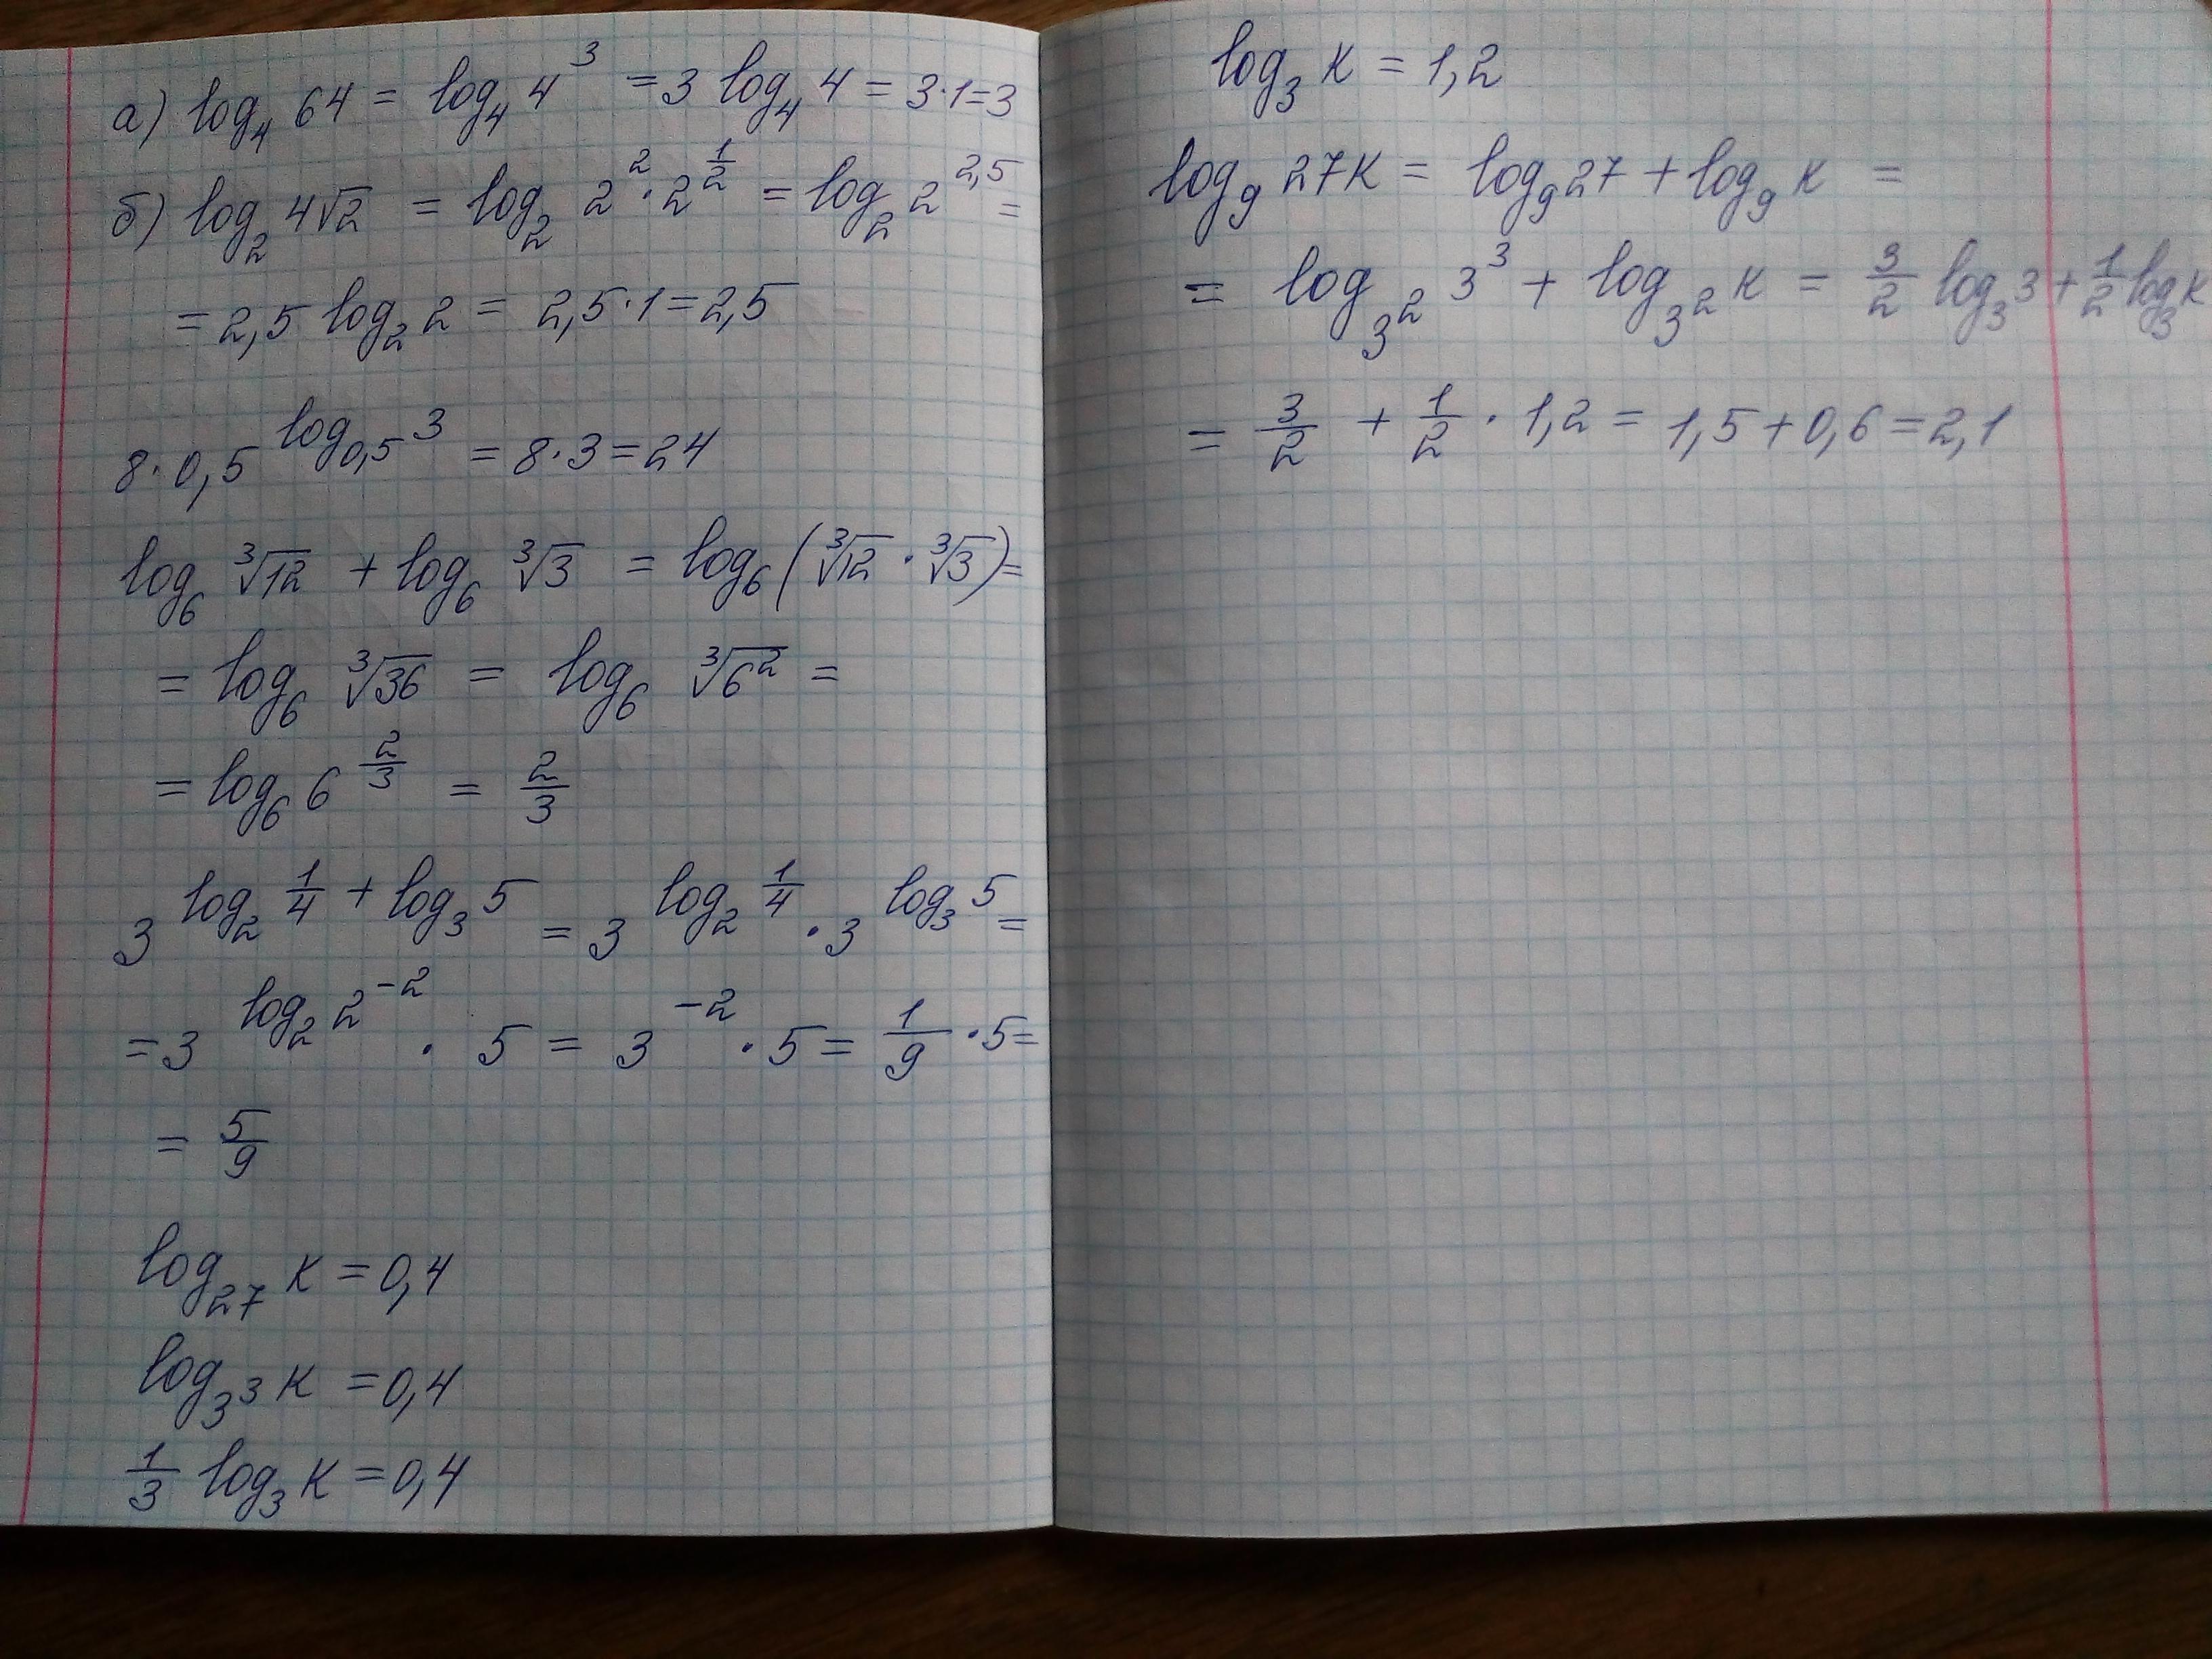 а) log₄ 64 = log₄ 4³ = 3 log₄ 4 = 3·1=3
б) log₂ 4√2 = log₂ 2²·2^(1/2) = log₂ 2^(2,5) =
= 2,5 log₂ 2 = 2,5·1=2,5
8·0,5^(log_(0,5) 3) = 8·3=24
log₆ ∛12 + log₆ ∛3 = log₆ (∛12 · ∛3)=
= log₆ ∛36 = log₆ ∛6² =
= log₆ 6^(2/3) = 2/3
3^(log₂ 1/4 + log₃ 5) = 3^(log₂ 1/4) · 3^(log₃ 5) =
= 3^(log₂ 2⁻²) · 5 = 3⁻² · 5 = 1/9 · 5=
= 5/9
log₂₇ к = 0,4
log_(3³) к = 0,4
1/3 log₃ к = 0,4
log₃ к = 1,2
log₉ 27к = log₉ 27 + log₉ к =
= log_(3²) 3³ + log_(3²) к = 3/2 log₃ 3 + 1/2 log₃ к
= 3/2 + 1/2 · 1,2 = 1,5+0,6=2,1